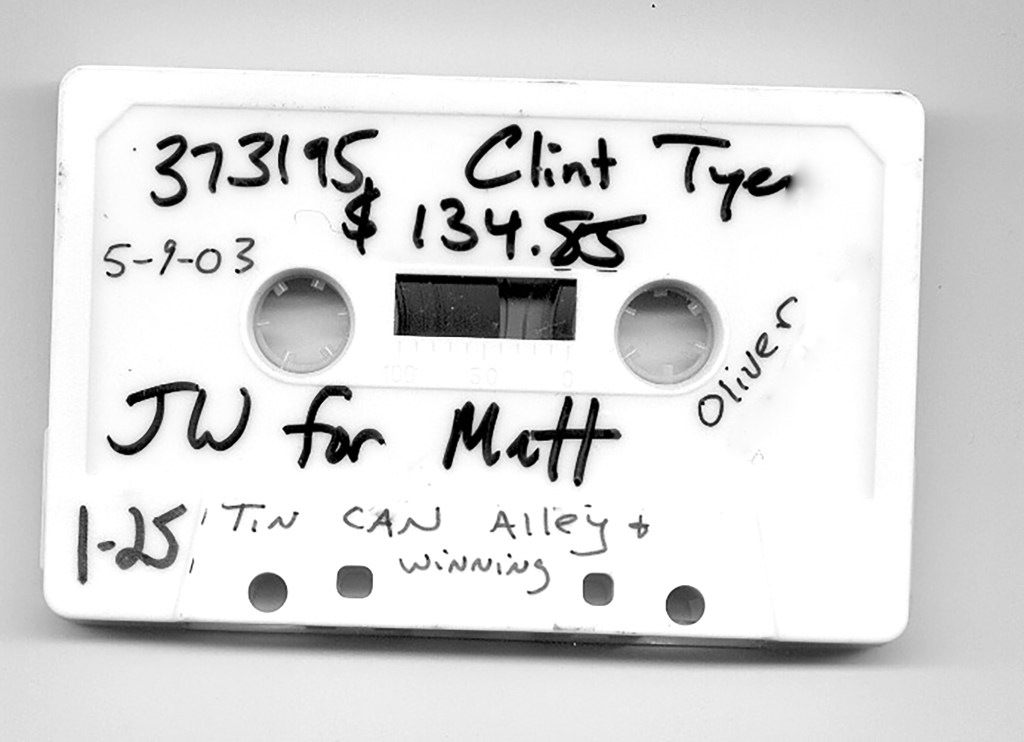 373195 Clint Tyer
$ 134.85
5-9-03
Oliver
100 50 0
JW for Matt
1-25
Tin CAN Alley +
winning